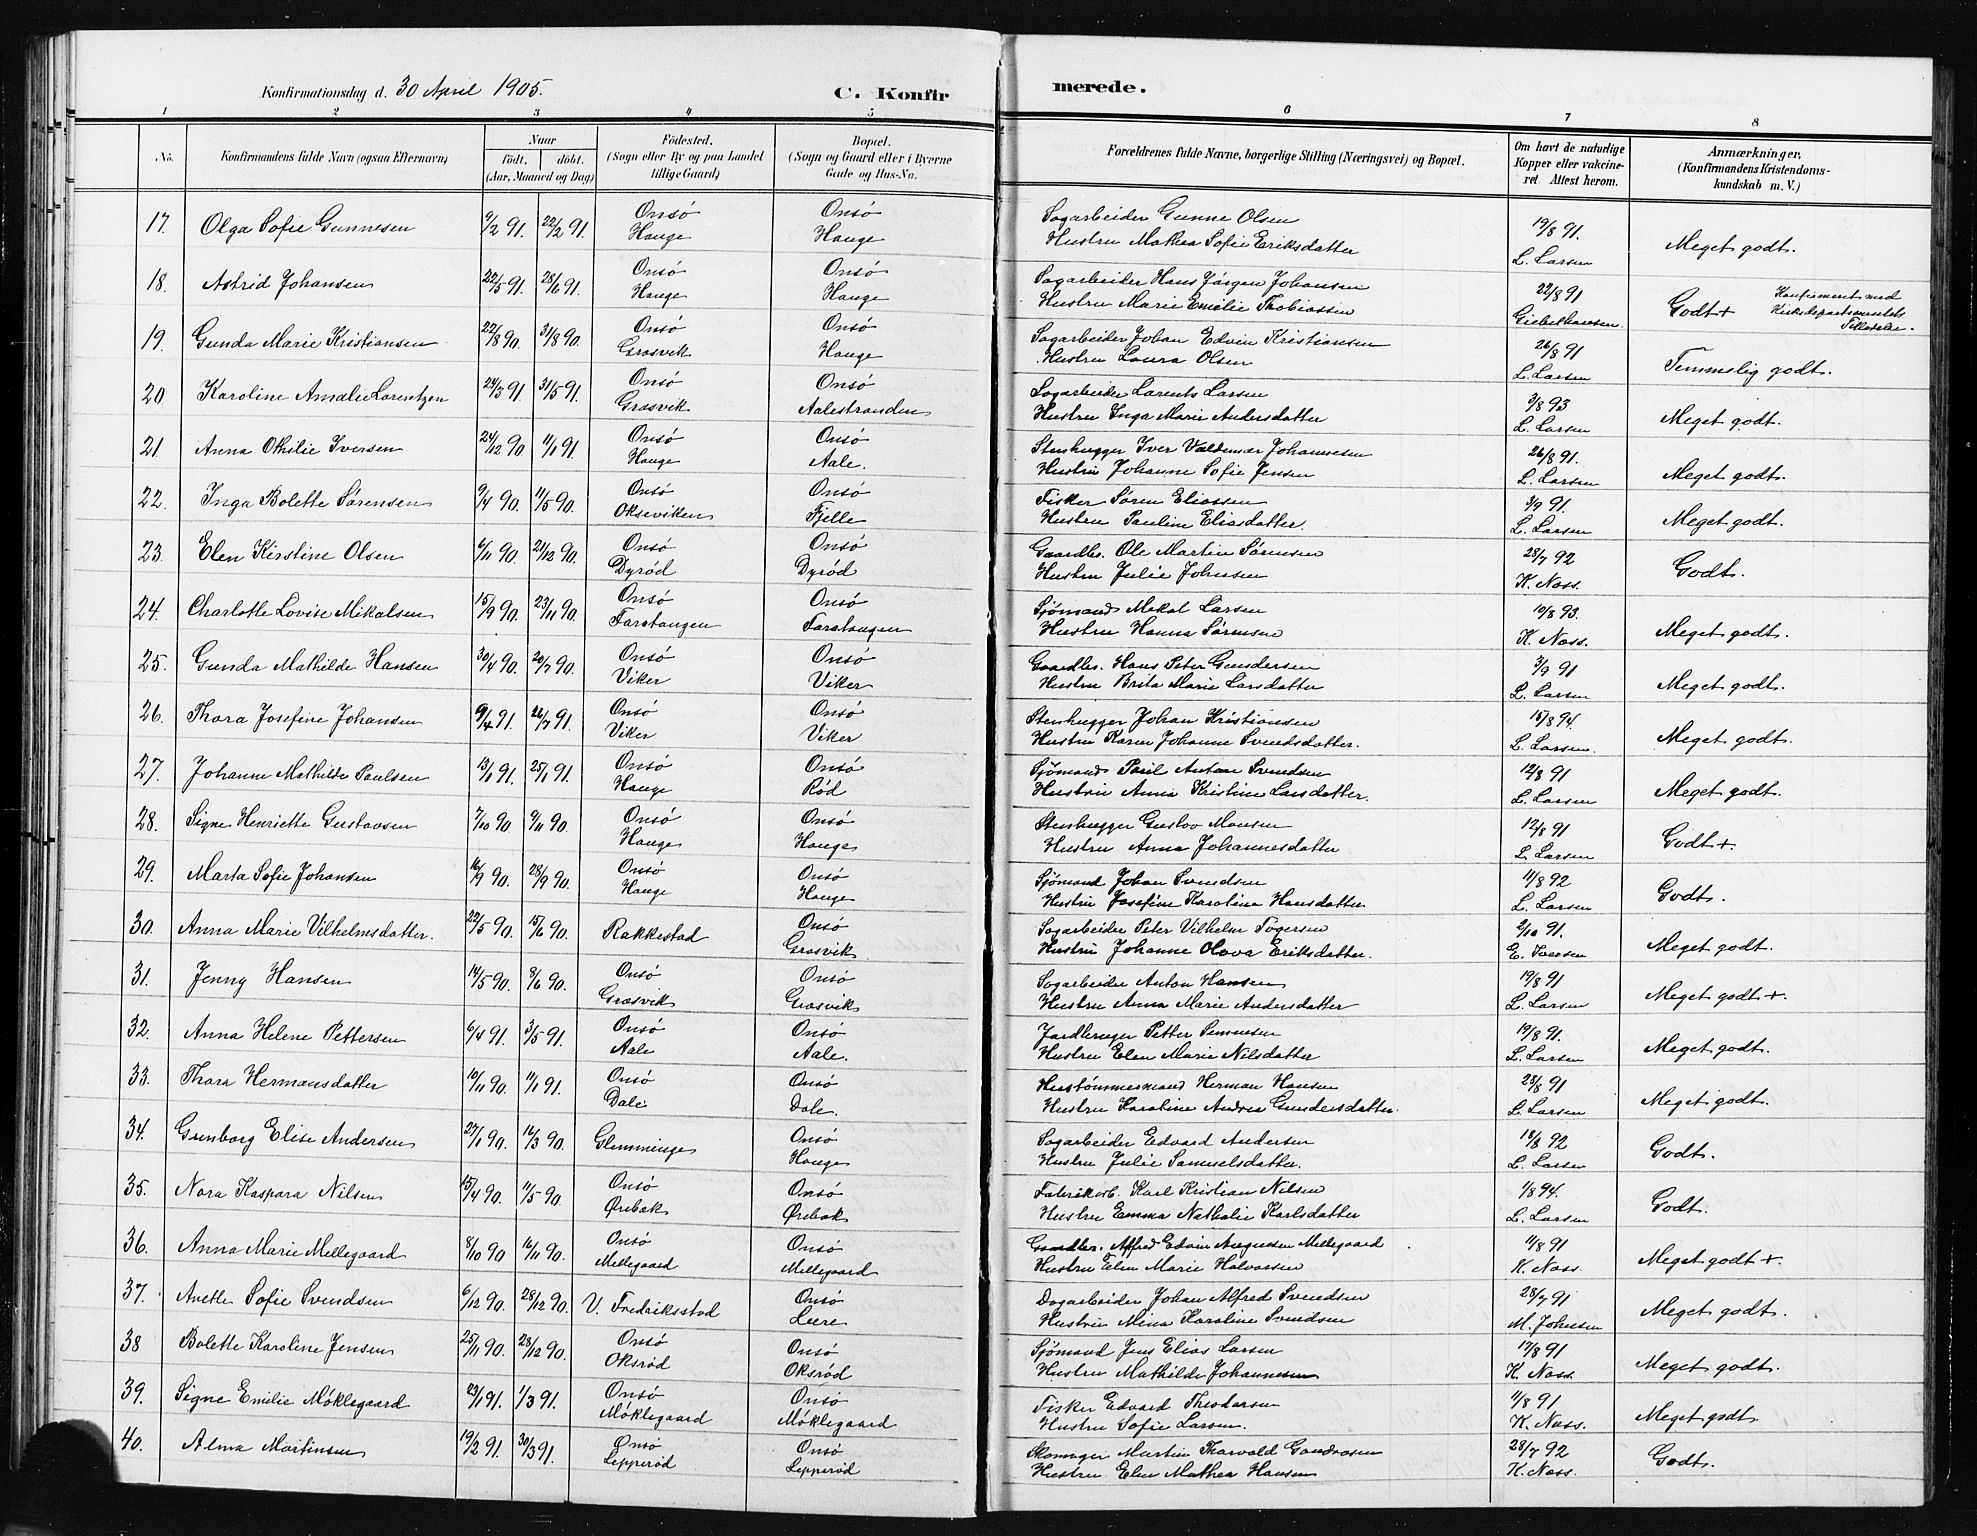 Konfirmationsdag d. 30 April 1905.
C. Konfir
merede.
1 2 3 4 5 6 7 8
No. Konfirmandens fulde Navn (ogsaa Efternavn)
Naar
født. døbt.
(Aar, Maaned og Dag)
Fødested.
(Sogn eller By og paa Landet
tillige Gaard)
Bopæl.
(Sogn og Gaard eller i Byerne
Gade og Hus-No.
Forældrenes fulde Navne, borgerlige Stilling (Næringsvei) og Bopæl.
Om havt de naturlige
Kopper eller vakcine-
ret. Attest herom.
Anmærkninger.
(Konfirmandens Kristendoms-
kundskab m. V.)
17. Olga Sofie Gunnesen 9/2 91. 22/2 91. Onsö Hauge Onsö Hauge
Sagarbeider Gunne Olsen
Hustru Mathea Sofie Eriksdatter
19/8 91. L. Larsen Meget godt.
18. Astrid Johansen 22/5 91. 28/6 91. Onsö Hauge Onsö Hauge
Sagarbeider Hans Jörgen Johansen
Hustru Marie Emilie Thobiassen
22/8 91 Giebelhausen Godt+ Konfirmeret med
Kirkedepartementets
Tilladelse.
19. Gunda Marie Kristiansen 22/8 90. 31/8 90. Onsö Græsvik Onsö Hauge
Sagarbeider Johan Edvin Kristiansen
Hustru Laura Olsen
26/8 91 L. Larsen Temmelig godt.
20 Karoline Amalie Lorentzen 24/3 91. 31/5 91. Onsö Græsvik Onsö Aalestranden
Sagarbeider Lorents Larsen
Hustru Inga Marie Andersdatter
3/8 93 L. Larsen Meget godt.
21 Anna Othilie Iversen 24/12 90 11/1 91. Onsö Hauge Onsö Aale.
Stenhugger Iver Valdemar Johannesen
Hustru Johanne Sofie Jensen
26/8 91. L. Larsen Meget godt.
22. Inga Bolette Sørensen 9/4 90. 11/5 90. Onsö Okseviken Onsö Fjelle
Fisker Søren Eliassen
Hustru Pauline Eliasdatter.
3/9 91. L. Larsen Meget godt.
23. Elen Kirstine Olsen 6/11 90. 21/12 90. Onsö Dyröd Onsö Dyröd
Gaardbr. Ole Martin Sørensen
Hustru Julie Johnsen
28/7 92 K. Nass. Godt.
24. Charlotte Lovise Mikalsen 15/9 90. 23/11 90. Onsö Faratangen Onsö Faratangen
Sjömand Mikal Larsen
Hustru Hanna Sørensen
10/8 93. K. Nass. Meget godt.
25. Gunda Mathilde Hansen 30/4 90. 20/7 90. Onsö Viker Onsö Viker
Gaardbr. Hans Peter Gundersen
Hustru Brita Marie Larsdatter
3/9 91 L. Larsen Meget godt.
26. Thora Josefine Johansen 9/4 91. 26/7 91. Onsö Viker Onsö Viker
Stenhugger Johan Kristiansen
Hustru Karen Johanne Svendsdatter.
15/8 94. L. Larsen. Meget godt.
27. Johanne Mathilde Paulsen 13/1 91. 25/1 91. Onsö Hauge Onsö Röd
Sjömand Paul Anton Svendsen
Hustru Anna Kristine Larsdatter.
12/8 91 L. Larsen Meget godt.
28. Signe Henriette Gustavsen 7/10 90 9/11 90. Onsö Hauge Onsö Hauge
Stenhugger Gustav Monsen
Hustru Anna Johannesdatter
12/8 91 L. Larsen Godt+.
29. Marta Sofie Johansen 16/9 90. 28/9 90. Onsö Hauge Onsö Hauge
Sjömand Johan Svendsen
Hustru Josefine Karoline Hansdatter.
11/8 92 L. Larsen Godt.
30. Anna Marie Vilhelmsdatter. 22/5 90. 15/6 90. Rakkestad Onsö Græsvik
Sagarbeider Peter Vilhelm Togersen
Hustru Johanne Olava Eriksdatter.
2/10 91. E. Iversen Meget godt.
31. Jenny Hansen 14/5 90. 8/6 90. Onsö Græsvik Onsö Græsvik
Sagarbeider Anton Hansen
Hustru Anna Marie Andersdatter
19/8 91 L. Larsen Meget godt+.
32. Anna Helene Pettersen 6/4 91. 3/5 91. Onsö Aale Onsö Aale.
Jordbruger Petter Simensen
Hustru Elen Marie Nilsdatter
19/8 91. L. Larsen Meget godt.
33. Thora Hermansdatter 10/11 90. 11/1 91. Onsö Dale Onsö Dale.
Hustömmermand Herman Hansen
Hustru Karoline Andrea Gundersdatter.
28/8 91 L. Larsen Meget godt.
34. Gunborg Elise Andersen 27/1 90. 16/3 90. Glemminge Onsö Hauge
Sagarbeider Edvard Andersen
Hustru Julie Samuelsdatter.
18/8 92 L. Larsen Godt.
35. Nora Kaspara Nilsen 15/4 90. 11/5 90. Onsö Örebæk Onsö Örebæk
Fabrikarb. Karl Kristian Nilsen
Hustru Emma Nathalie Karlsdatter
1/8 94. L. Larsen Godt.
36. Anna Marie Mellegaard 8/10 90 16/11 90. Onsö Mellegaard Onsö Mellegaard
Gaardbr. Alfred Edvin Augustsen Mellegaard
Hustru Elen Marie Halvorsen
11/8 91 K. Nass. Meget godt+.
37. Anette Sofie Svendsen 6/12 90. 28/12 90. V. Fredriksstad Onsö Leere
Dagarbeider Johan Alfred Svendsen
Hustru Mina Karoline Svendsen
28/7 91 M. Johnsen Meget godt.
38 Bolette Karoline Jensen 25/11 90. 28/12 90. Onsö Oksröd Onsö Oksröd
Sjömand Jens Elias Larsen
Hustru Mathilde Johannesen
17/8 91 K. Nass. Meget godt.
39. Signe Emilie Möklegaard 23/1 91. 1/3 91. Onsö Möklegaard Onsö Möklegaard
Fisker Edvard Theodorsen
Hustru Sofie Larsen.
11/8 91 K. Nass. Meget godt
40. Alma Martinsen 19/2 91. 30/3 91. Onsö Lepperöd Onsö Lepperöd
Skomager Martin Thorvald Gundrosen
Hustru Elen Mathea Hansen
28/7 92 K. Nass. Godt.